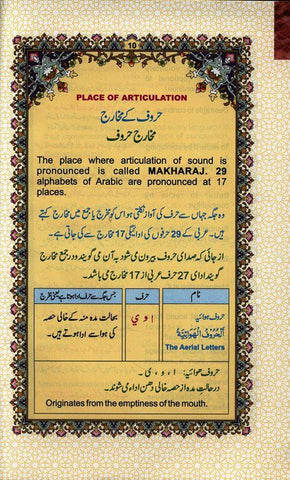 10
PLACE OF ARTICULATION
حروف کے مخارج
مخارج حروف
The place where articulation of sound is
pronounced is called MAKHARAJ. 29
alphabets of Arabic are pronounced at 17
places.
وہ جگہ جہاں سے حرف کی آواز نکلتی ہو اس کو مخرج یا جمع میں مخارج کہتے
ہیں۔ عربی کے 29 حرفوں کی ادائیگی 17 مخارج سے کی جاتی ہے۔
از جائی کہ صدای حروف بیرون می شود به آن می گویند و در جمع مخارج
گویند ادای 27 حرف عربی از 17 مخارج می باشد۔
نام حرف جس جگہ سے حرف ادا ہوتا ہے یعنی مخرج
حروف ہوائیہ
اَلْحُرُوْفُ الْهَوَائِيَّةُ
The Aerial Letters
ا و ی
بحالت مدہ منہ کے خالی حصہ
کی ہوا سے ادا ہوتے ہیں۔
حروف حوائیہ: ا ، و ، ی ۔
درحالت مدہ از حصہ خالی دھن ادا می شوند۔
Originates from the emptiness of the mouth.